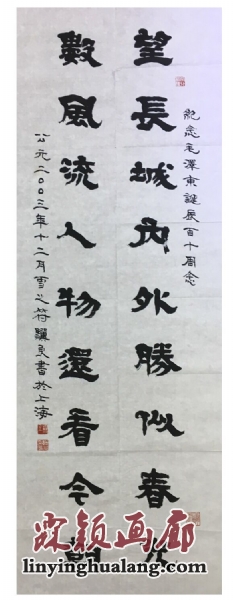 紀念毛澤東誕辰百十周念
望長城內外勝似春光
數風流人物還看今朝
公元二〇〇三年十二月雪之符驥良書於上海
霖颖画廊
linyinghualang.com